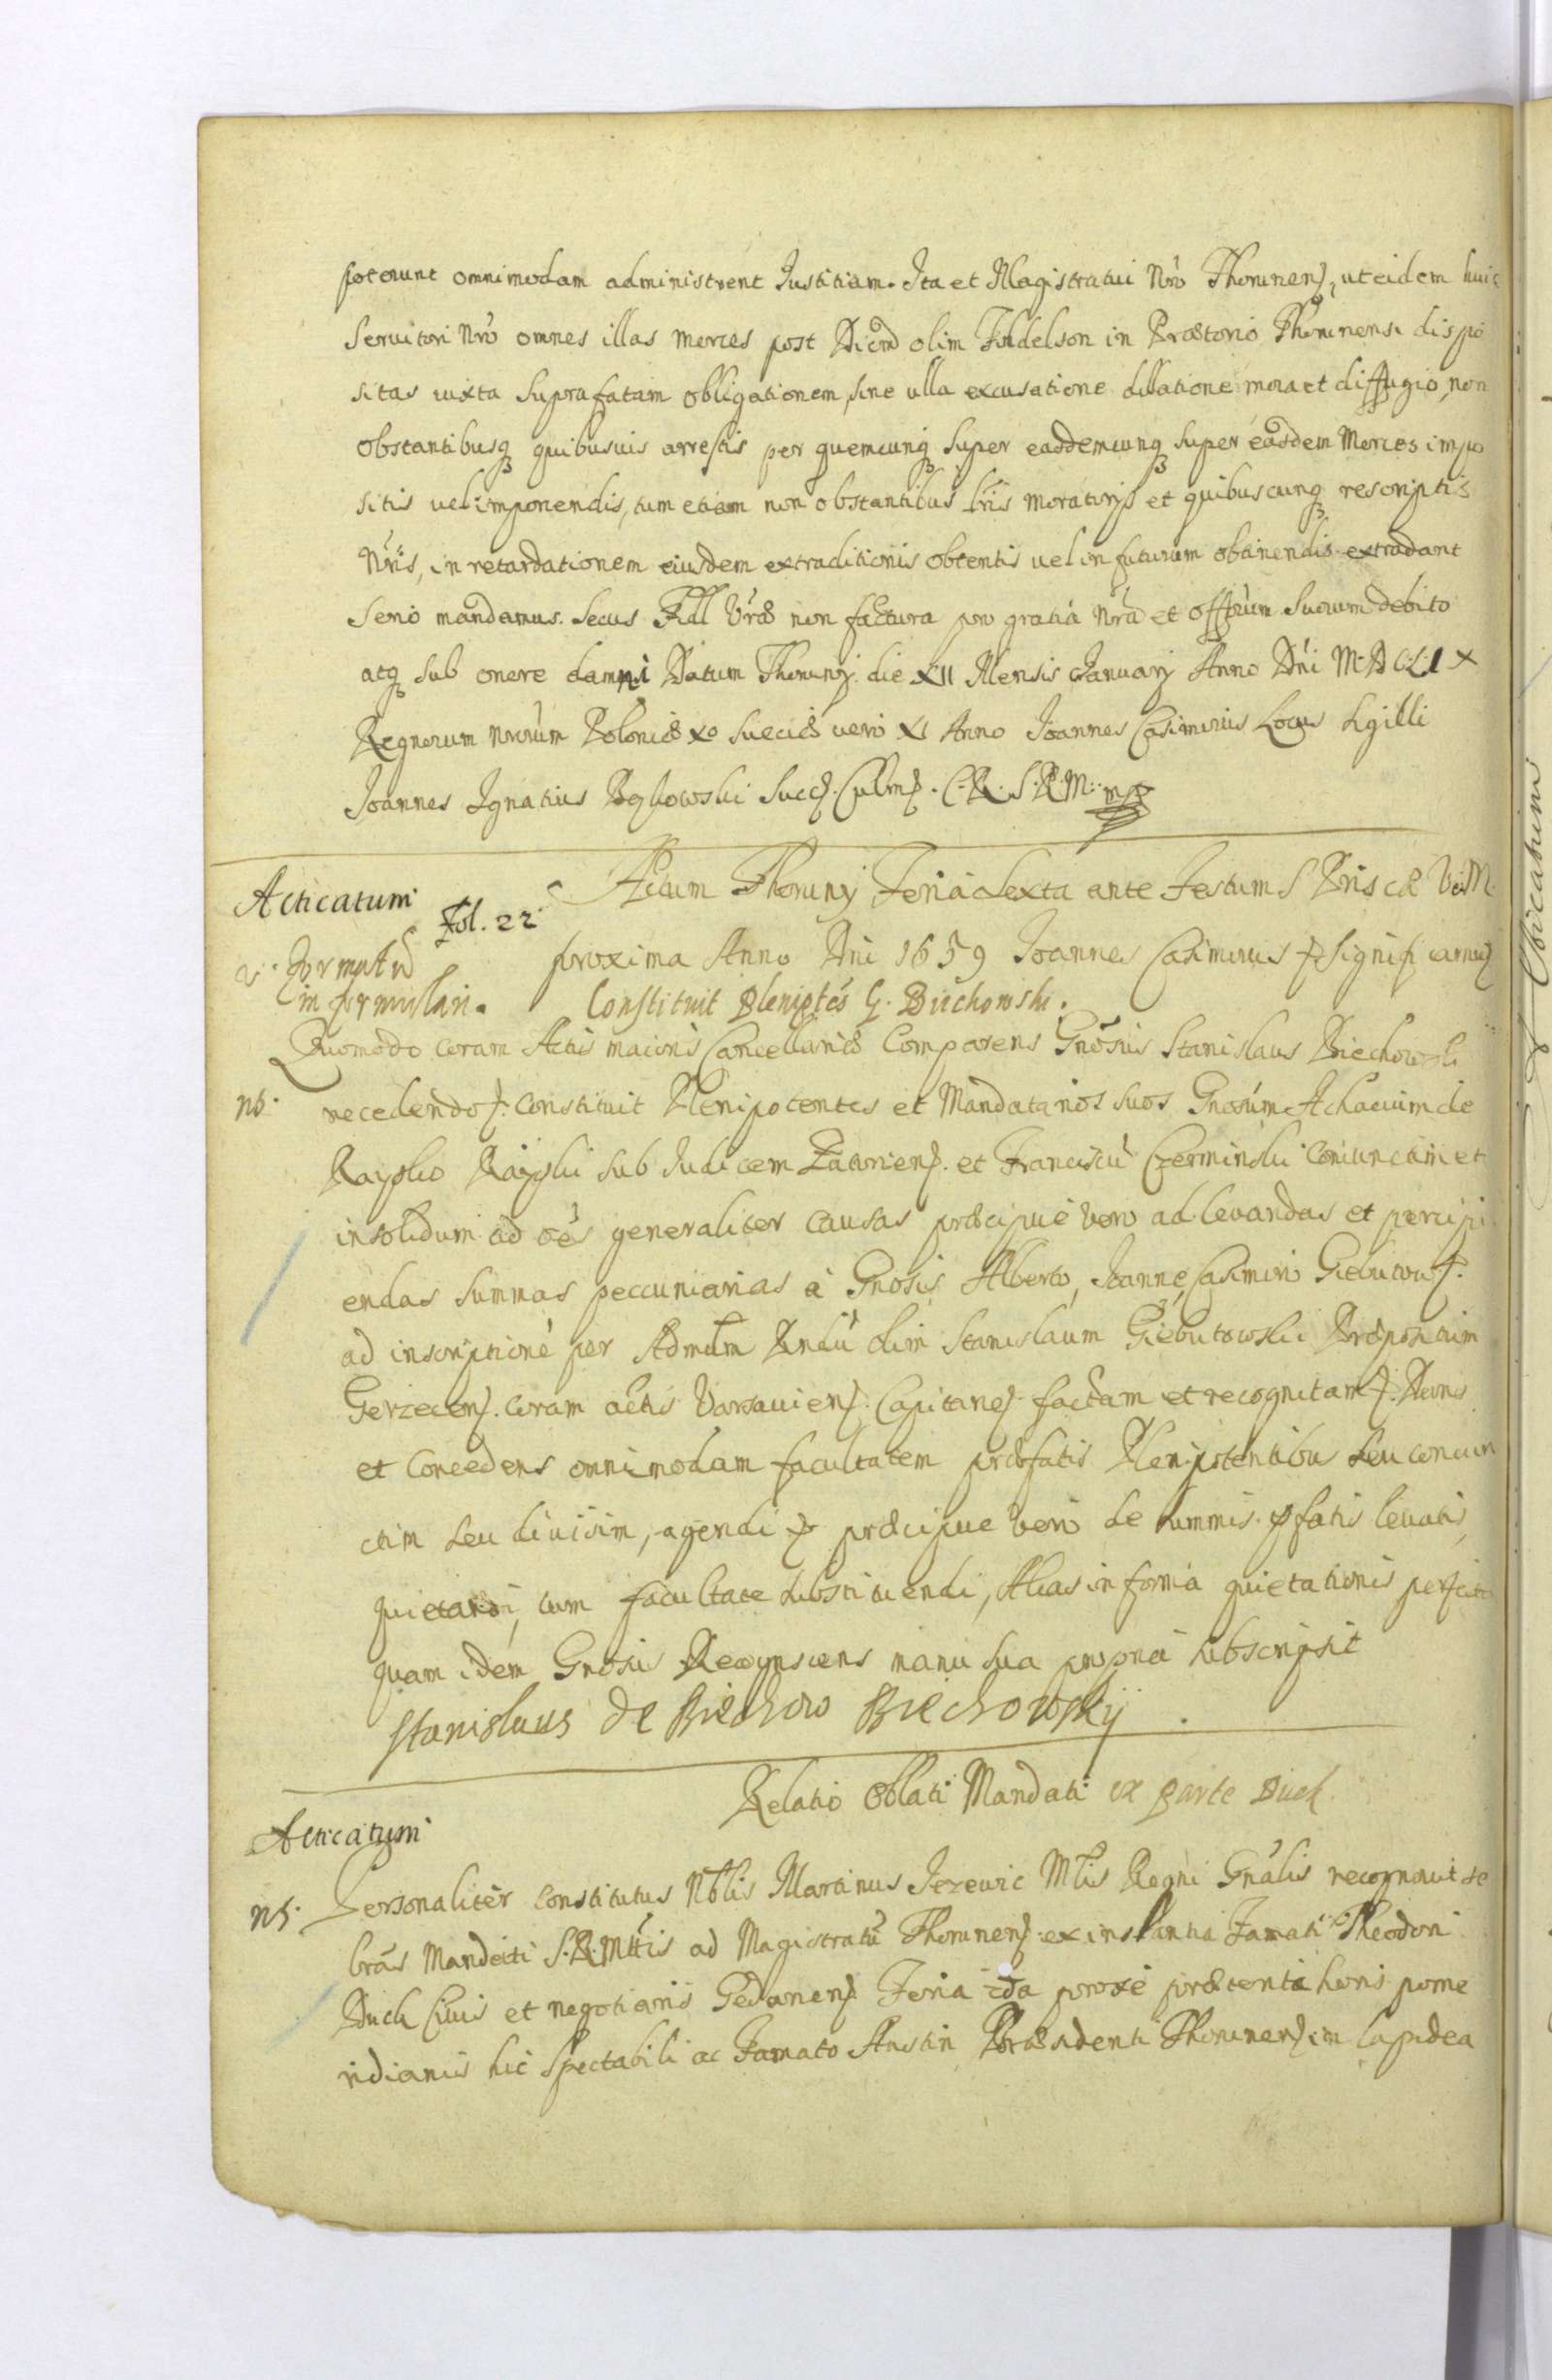 poterunt omnimodam administrent Justitiam. Ita et Magistratui Nrō Thorunens, ut eidem huic
Seruitori Nrō omnes illas merces post Dictū olim Findelson in Prætorio Thorunensi dispo
sitas iuxta Suprafatam obligationem, sine ulla excusatione dillatione mora et diffugio, non
obstantibusq quibusuis arrestis per quemcunq super easdemcunq super easdem Merces impo
sitis uel imponendis, tum etiam non obstantibus lris moratorijs et quibuscunq rescriptis
Nris, in retardationem eiusdem extraditionis obtentis uel in futurum obtinendis extradant
Serio mandamus. Secus Fidl Vræ non factura pro gratia Nrā et offrūm Suorum debito
atq sub onere damni Datum Thorunij die XII Mensis Januarij Anno Dni M.D.C.L.IX
Regnorum nrorūm Poloniæ Xo Sueciæ vero XI Anno Joannes Casimirus Locus Sigilli
Joannes Ignatius Bąkowski Succ. Culms. C. R. S.R.M. mp
Acticatum Fol. 22 Actum Thorunij Feria Sexta ante Festum S Priscæ V et M
proxima Anno Dni 1659 Joannes Casimirus significamus
in formulari. Constituit Pleniptēs G. Biechowski.
Quomodo coram Actis maioris Cancellariæ Comparens Gnōsus Stanislaus Biechowski
nb. recedendo constituit Plenipotentes et Mandatarios suos Gnosūm Achacium de
Raysko Rayski Sub Judicem Zatoriens. et Franciscū Czerminski coniunctim et
insolidum ad oēs generaliter causas præcipuè vero ad leuandas et percipi
endas summas peccuniarias à Gnosis Alberto, Joanne, Casimiro Giebutow
ad inscriptionē per Admdm Rndū olim Stanislaum Giebutowski Præpositum
Gerzecens. coram actis Varsauiens. Capitanes. factam et recognitam Dans
et Concedens omnimodam facultatem præfatis Plenipotentibus seu coniun
ctim seu diuisim, agendi præcipue vero de summis pfatis leuatis,
quietandi, cum facultate substituendi, Alias in forma quietationis
quam idem Gnosus Recognoscens manu sua propria subscripsit
Stanislaus de Biechow Biechowskij.
Relatio Oblati Mandati ex parte Duch
Acticatum
nb. Personaliter constitutus Nblis Martinus Jezewic Mtlis Regni Gnālis recognouit se
brās Mandati S.R.Mttis ad Magistratū Thorunens. ex instantia Famati Theodori
Duch Ciuis et negotiaris Gedanens. Feria 2da proxē præterita horis pome
ridianis hic Spectabili ac Famato Austin Præsidenti Thorunens. in lapidea